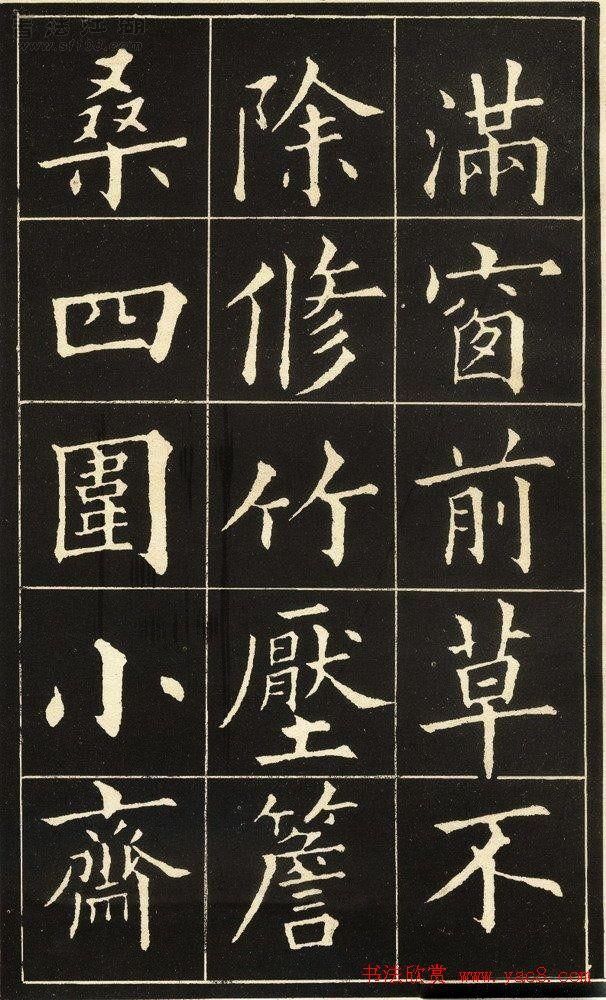 滿窗前草不
除修竹壓簷
桑四圍小齋
书法江湖
www.sf108.com
书法欣赏 www.yac8.com